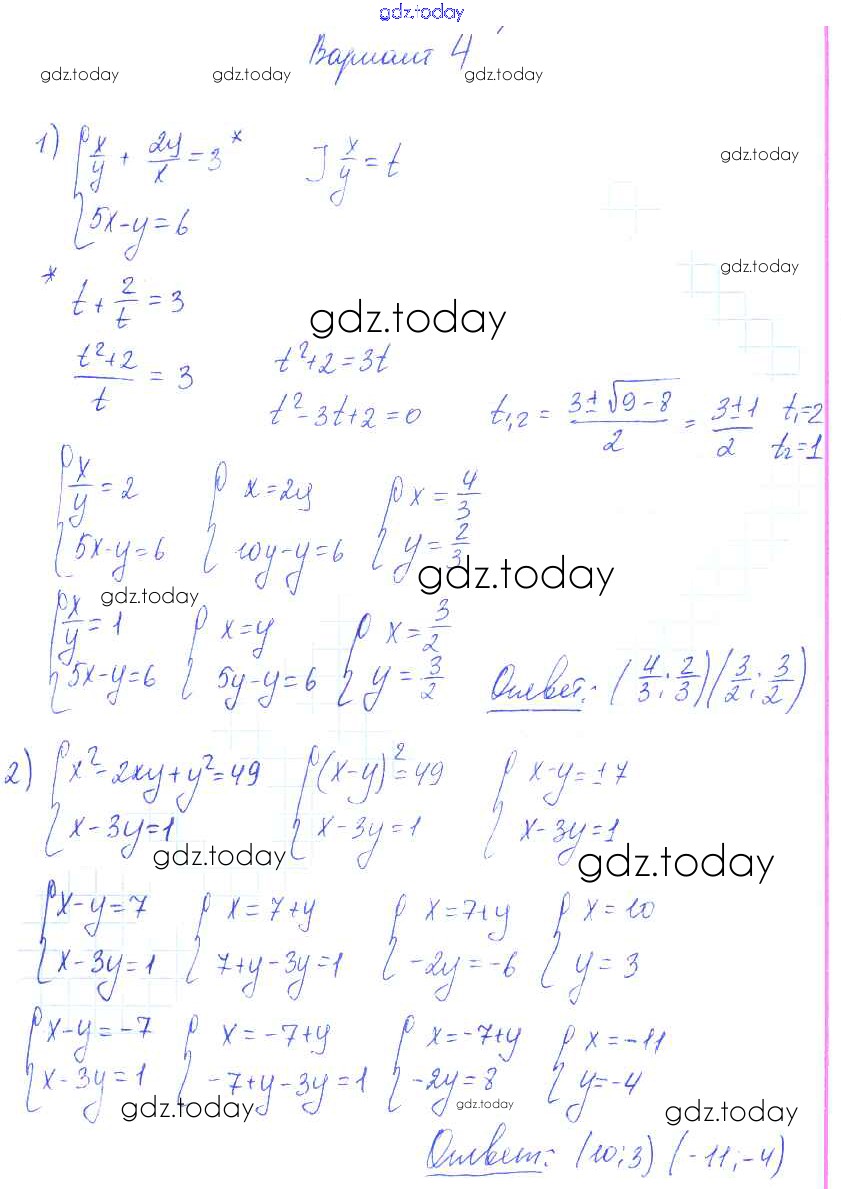 gdz.today
Вариант 4
gdz.today gdz.today gdz.today
1) { x/y + 2y/x = 3 * ] x/y = t
gdz.today
5x-y=6
gdz.today
* t + 2/t = 3
gdz.today
(t²+2)/t = 3 t²+2=3t
t²-3t+2=0 t₁,₂ = (3±√9-8)/2 = (3±1)/2 t₁=2 t₂=1
{ x/y = 2 { x=2y { x = 4/3
5x-y=6 10y-y=6 y = 2/3
gdz.today
gdz.today
{ x/y = 1 { x=y { x = 3/2
5x-y=6 5y-y=6 y = 3/2 Ответ: (4/3; 2/3) (3/2; 3/2)
2) { x²-2xy+y²=49 { (x-y)²=49 { x-y=±7
x-3y=1 x-3y=1 x-3y=1
gdz.today gdz.today
{ x-y=7 { x=7+y { x=7+y { x=10
x-3y=1 7+y-3y=1 -2y=-6 y=3
{ x-y=-7 { x=-7+y { x=-7+y { x=-11
x-3y=1 -7+y-3y=1 -2y=8 y=-4
gdz.today gdz.today gdz.today
Ответ: (10;3) (-11;-4)